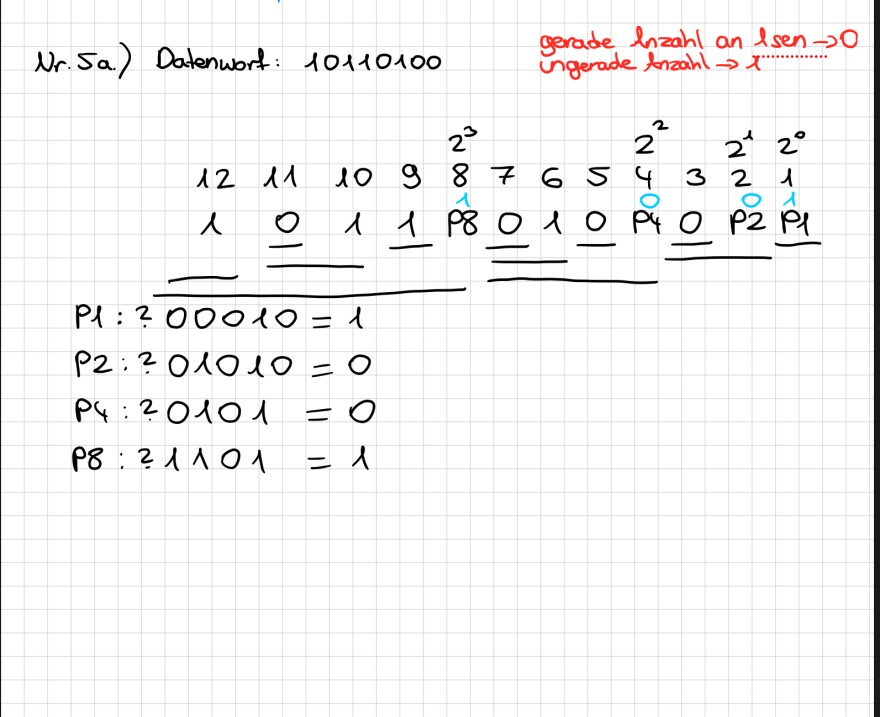 Nr. 5a.) Datenwort: 10110100
gerade Anzahl an 1sen → 0
ungerade Anzahl → 1
2³ 2² 2¹ 2⁰
12 11 10 9 8 7 6 5 4 3 2 1
1 0 0 1
1 0 1 1 P8 0 1 0 P4 0 P2 P1
P1 : ? 00010 = 1
P2 : ? 01010 = 0
P4 : ? 0101 = 0
P8 : ? 1101 = 1